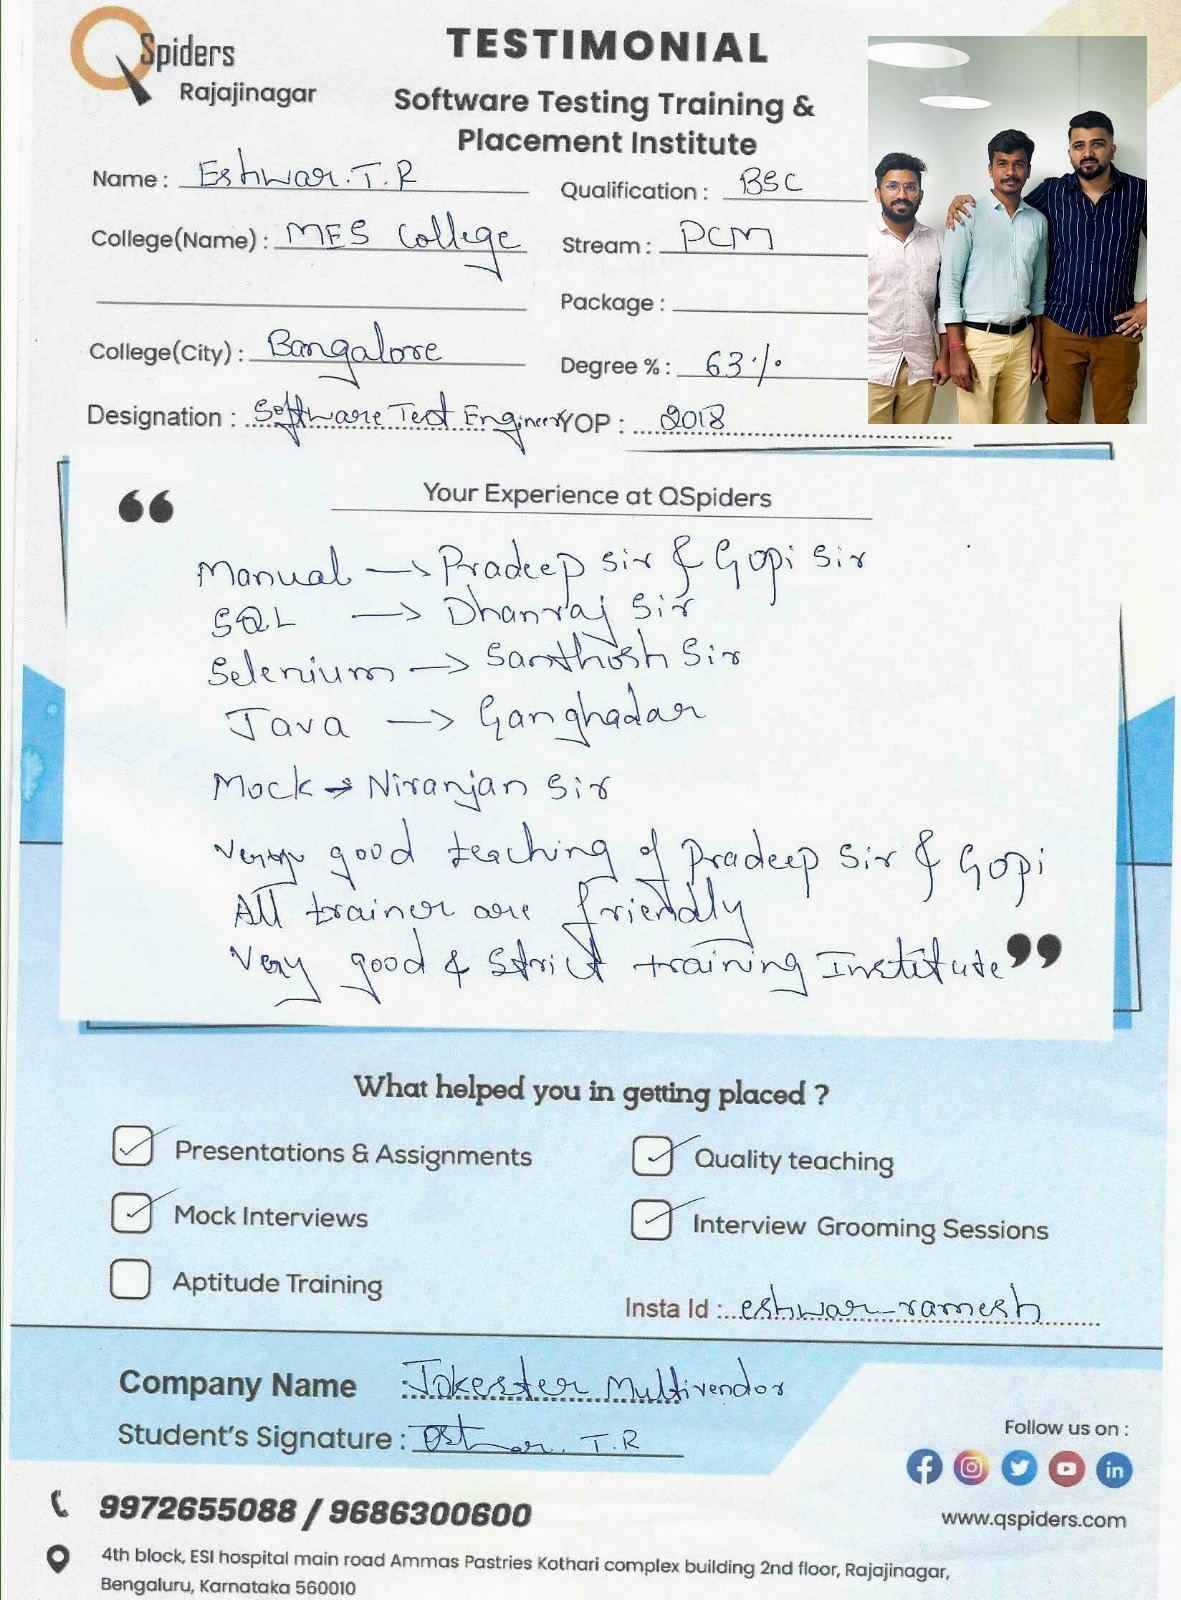 QSpiders
Rajajinagar
TESTIMONIAL
Software Testing Training &
Placement Institute
Name : Eshwar.T.R
Qualification : BSC
College(Name) : MES College
Stream : PCM
Package :
College(City) : Bangalore
Degree % : 63%
Designation : Software Test Engineer
YOP : 2018
“
Your Experience at QSpiders
Manual → Pradeep Sir & Gopi Sir
SQL → Dhanraj Sir
Selenium → Santhosh Sir
Java → Ganghadar
Mock → Niranjan Sir
Very good teaching of Pradeep Sir & Gopi
All trainer are friendly
Very good & Strict training Institute ”
What helped you in getting placed ?
Presentations & Assignments
Quality teaching
Mock Interviews
Interview Grooming Sessions
Aptitude Training
Insta Id : eshwar_ramesh
Company Name : Jokester Multivendor
Student's Signature : T.R
Follow us on :
9972655088 / 9686300600
www.qspiders.com
4th block, ESI hospital main road Ammas Pastries Kothari complex building 2nd floor, Rajajinagar,
Bengaluru, Karnataka 560010